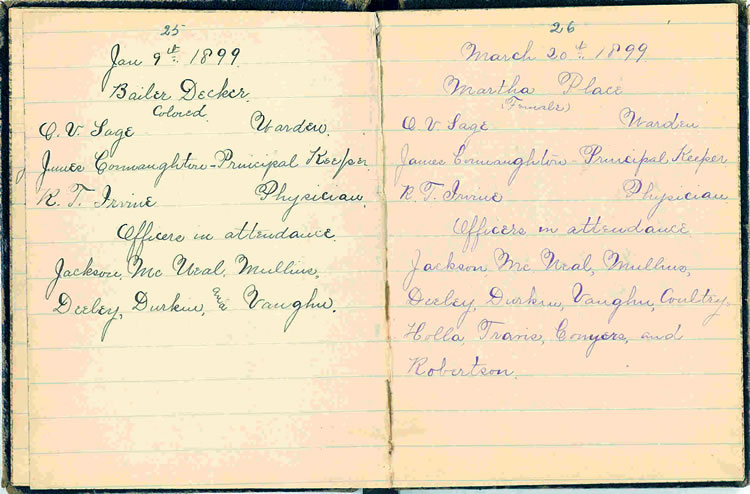 25
Jan 9th 1899.
Bailer Decker.
Colored.
O. V. Sage Warden.
James Connaughton - Principal Keeper
R. T. Irvine Physician.
Officers in attendance.
Jackson, Mc Neal, Mullins,
Deeley, Durkin, and Vaughn.
26
March 20th 1899
Martha Place
(Female)
O. V. Sage Warden
James Connaughton - Principal Keeper
R. T. Irvine Physician
Officers in attendance
Jackson, Mc Neal, Mullins,
Deeley, Durkin, Vaughn, Coultry,
Holla, Travis, Conyers, and
Robertson.